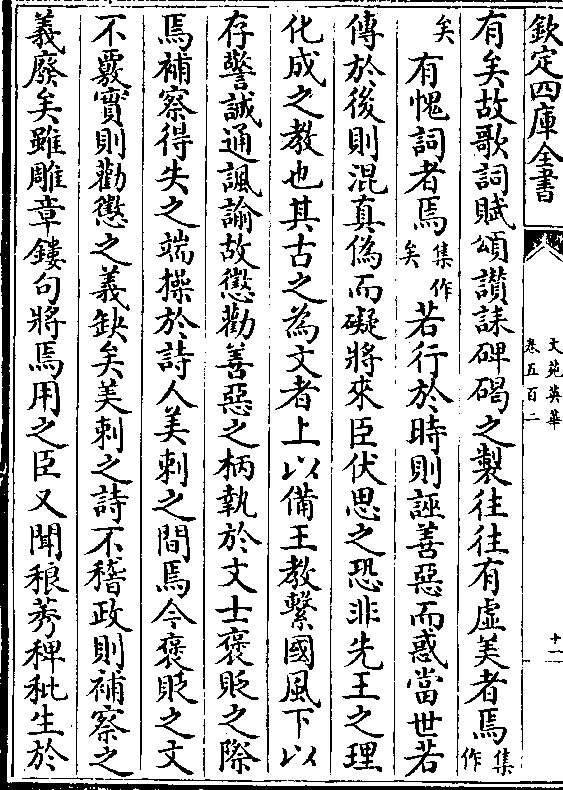 欽定四庫全書
文苑英華
卷五百二
十一
有矣故歌詞賦頌讃誄碑碣之製往往有虛美者焉集作
矣有愧詞者焉集作矣若行於時則誣善惡而惑當世若
傳於後則混真偽而礙將來臣伏思之恐非先王之理
化成之教也其古之為文者上以備王教繫國風下以
存警誡通諷諭故懲勸善惡之柄執於文士褒貶之際
焉補察得失之端操於詩人美刺之間焉今褒貶之文
不覈實則勸懲之義缺矣美刺之詩不稽政則補察之
義廢矣雖雕章鏤句將焉用之臣又聞稂莠稗秕生於